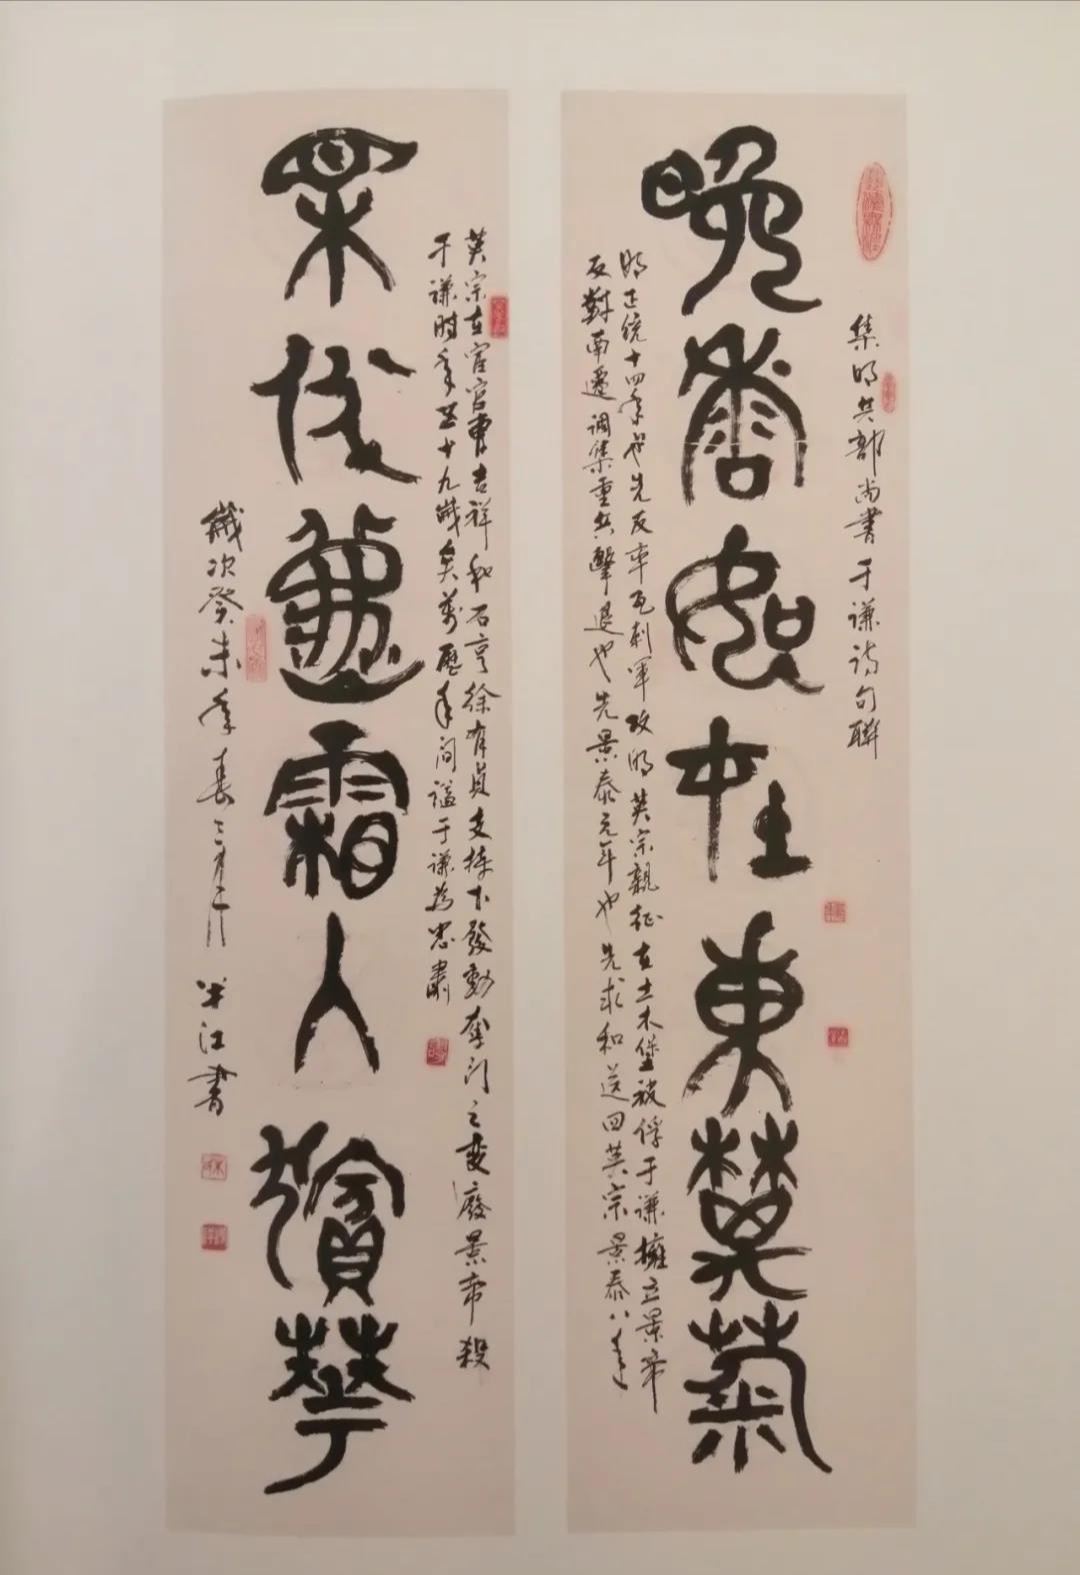 集明兵部尚書于謙詩句聯
晚香如在東菊
明正統十四年也先反率瓦剌軍攻明英宗親征在土木堡被俘于謙擁立景帝
反對南遷調集重兵擊退也先景泰元年也先求和送回英宗景泰八年
英宗在宦官曹吉祥和石亨徐有貞支持下發動奪門之變廢景帝殺
于謙時年五十九歲矣萬歷年間謚于謙為忠肅
伐霜人華
歲次癸未年春三月江書